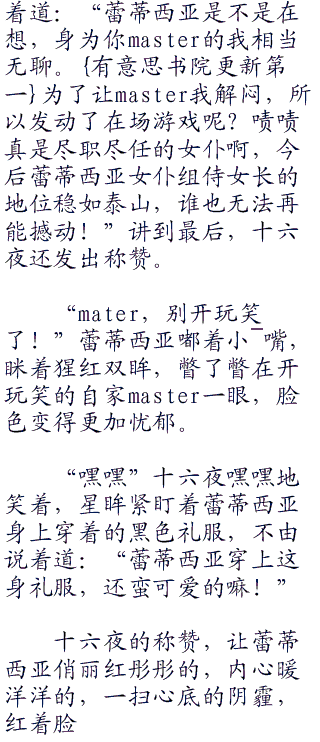 着道：“蕾蒂西亚是不是在
想，身为你master的我相当
无聊。{有意思书院更新第
一}为了让master我解闷，所
以发动了在场游戏呢？啧啧
真是尽职尽任的女仆啊，今
后蕾蒂西亚女仆组侍女长的
地位稳如泰山，谁也无法再
能撼动！”讲到最后，十六
夜还发出称赞。
“mater，别开玩笑
了！”蕾蒂西亚嘟着小¯嘴，
眯着猩红双眸，瞥了瞥在开
玩笑的自家master一眼，脸
色变得更加忧郁。
“嘿嘿”十六夜嘿嘿地
笑着，星眸紧盯着蕾蒂西亚
身上穿着的黑色礼服，不由
说着道：“蕾蒂西亚穿上这
身礼服，还蛮可爱的嘛！”
十六夜的称赞，让蕾蒂
西亚俏丽红彤彤的，内心暖
洋洋的，一扫心底的阴霾，
红着脸